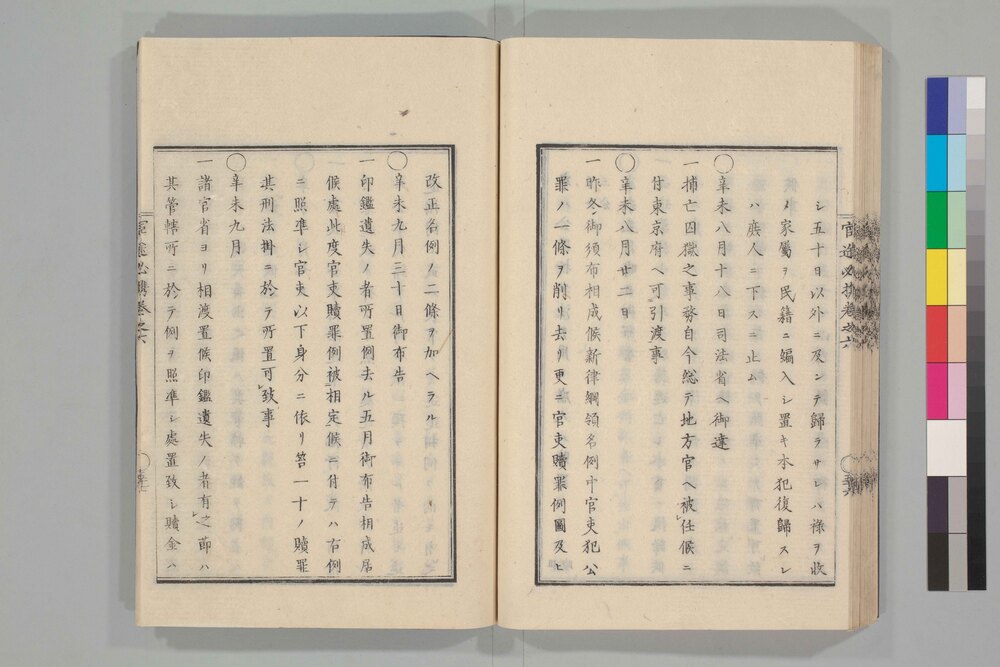 シ五十日以外ニ及ンテ歸ラサレハ祿ヲ收
候ノ家屬ヲ民籍ニ編入シ置キ本犯復歸スレ
ハ庶人ニ下スニ止ム
○辛未八月十八日司法省ヘ御達
一捕亡囚獄之事務自今総テ地方官ヘ被任候ニ
付東京府ヘ可引渡事
○辛未八月廿二日
一昨冬御頒布相成候新律綱領名例中官吏犯公
罪ノ一條ヲ削リ去リ更ニ官吏贖罪例圖及ヒ
官途必携巻之六
○三十六
改正名例ノ二條ヲ加ヘラル
○辛未九月三十日御布告
一印鑑遺失ノ者所置例去ル五月御布告相成居
候處此度官吏贖罪例被相定候ニ付テハ右例
ニ照準シ官吏以下身分ニ依リ笞一十ノ贖罪
其刑法掛ニ於テ所置可致事
○辛未九月
一諸官省ヨリ相渡置候印鑑遺失ノ者有之節ハ
其管轄所ニ於テ例ヲ照準シ處置致シ贖金ハ
官途必携巻之六
○三十七